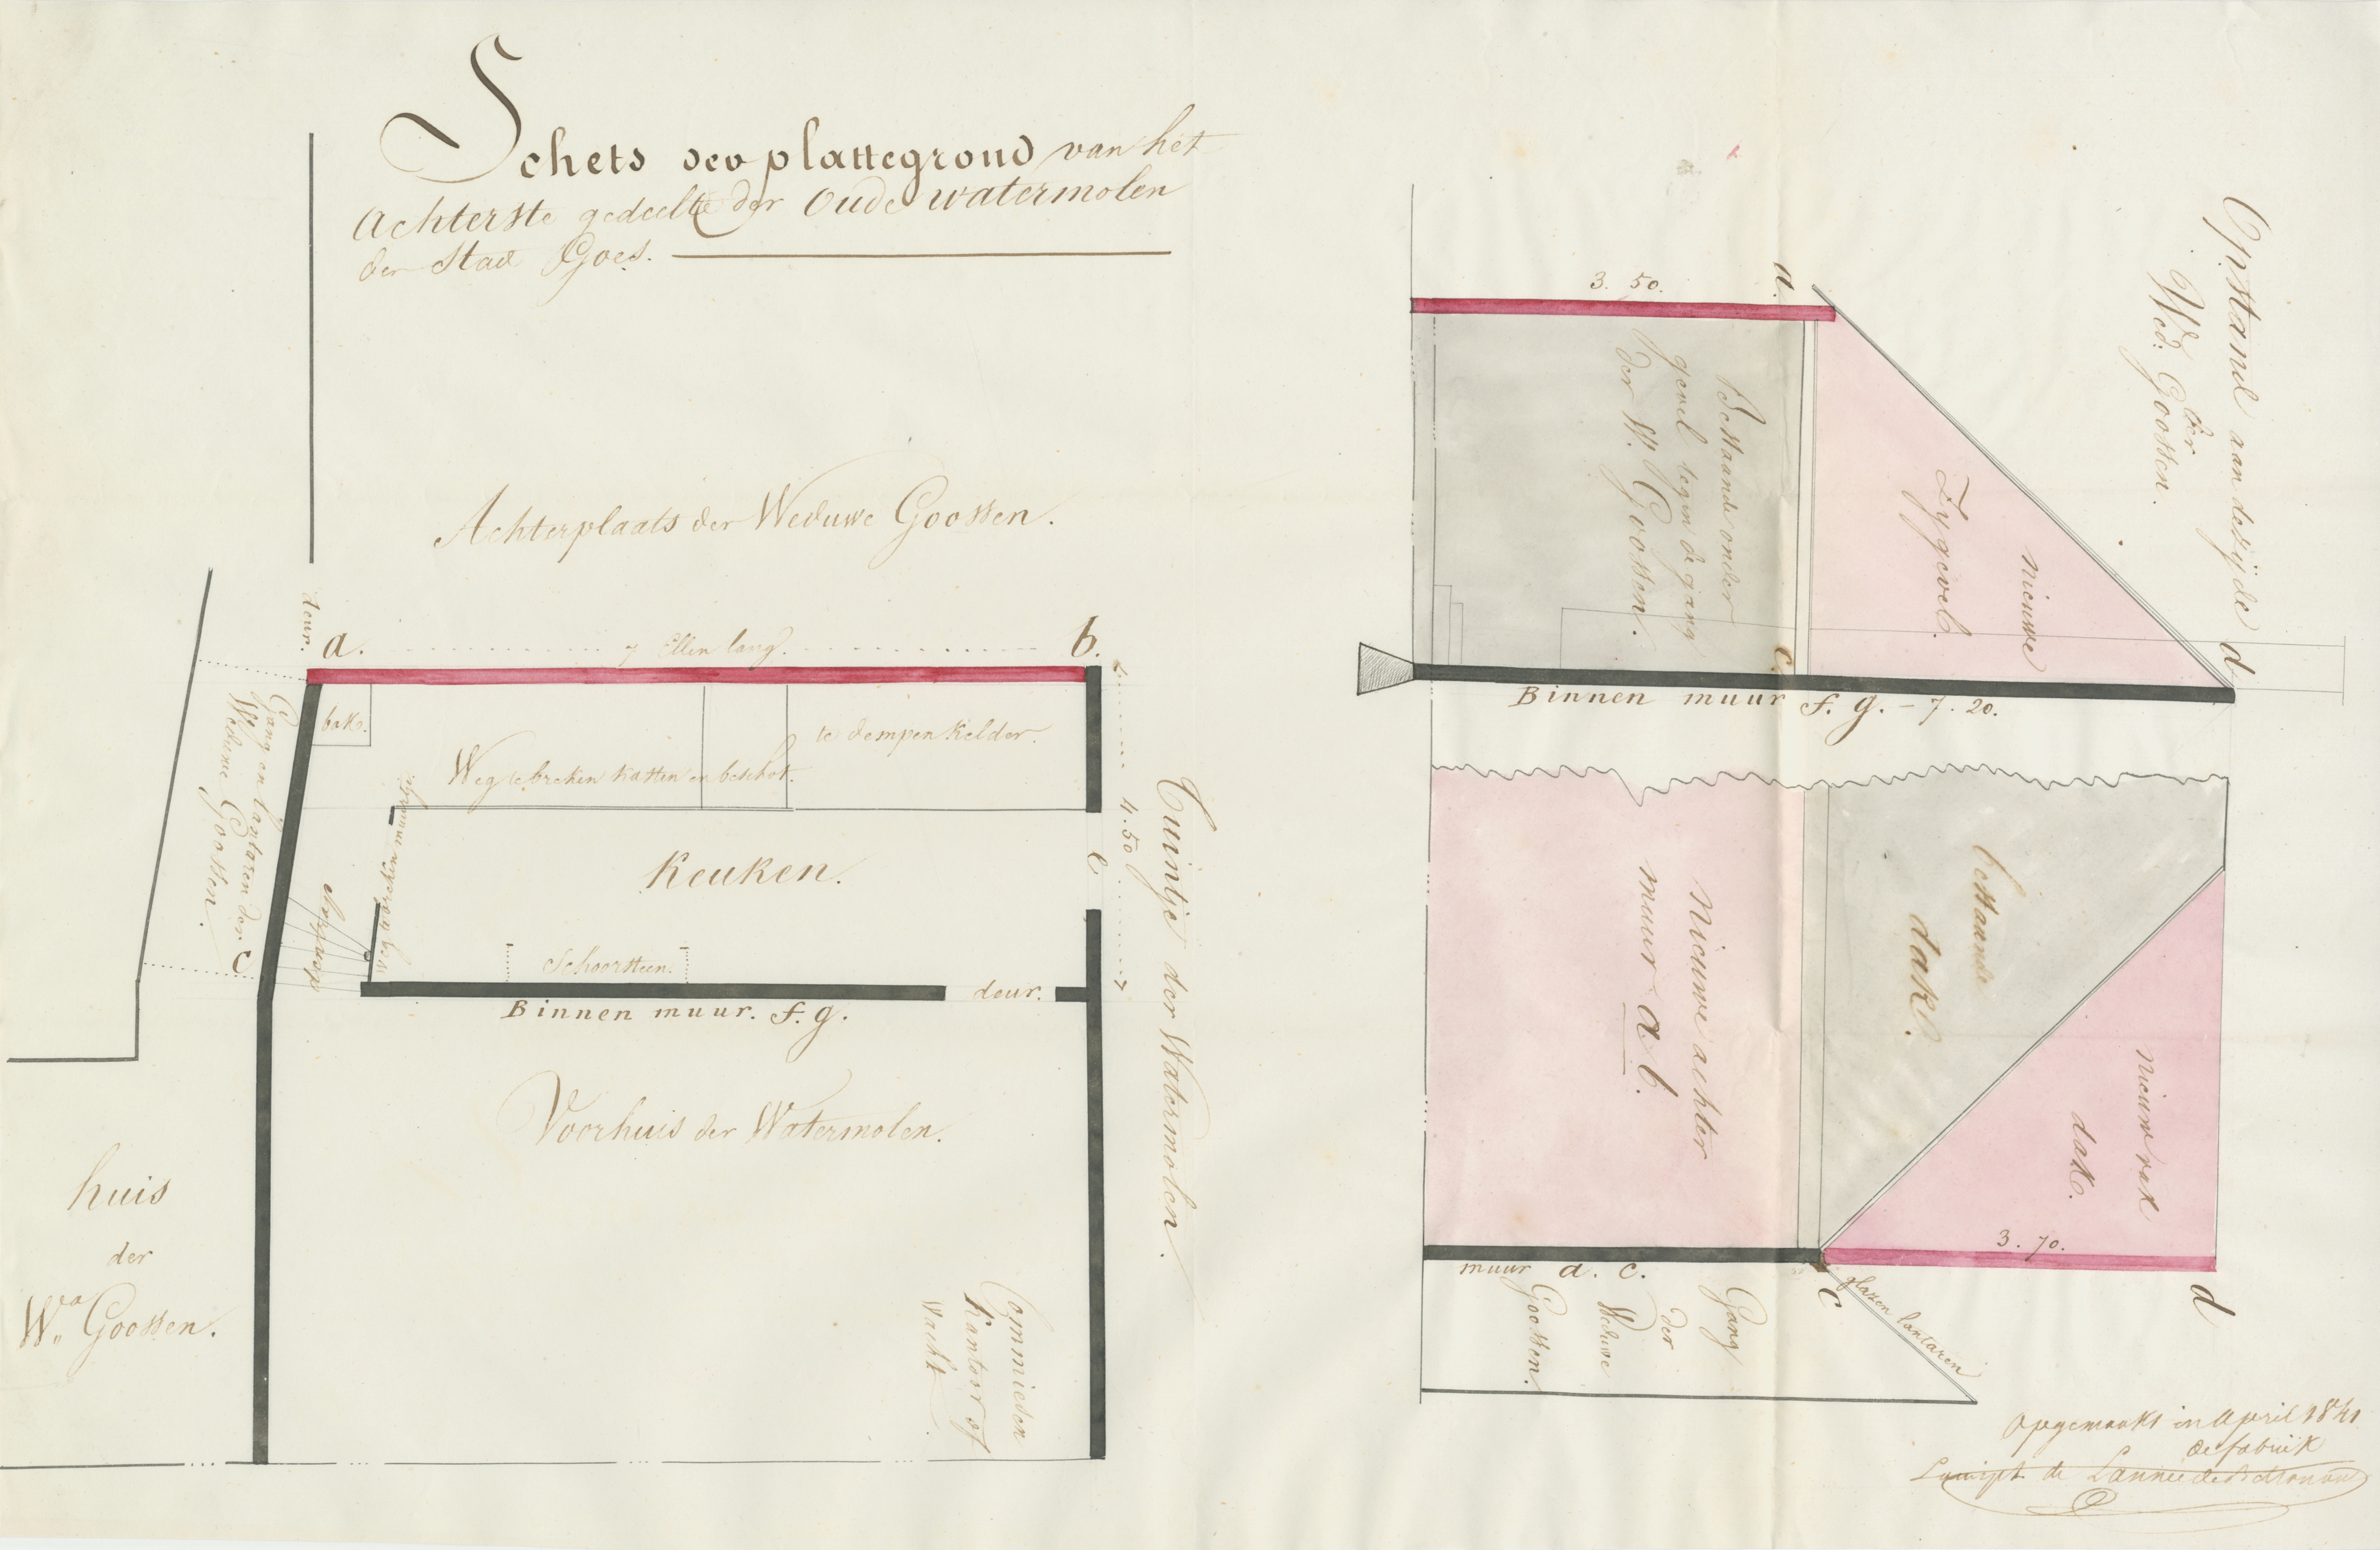 Schets des plattegrond van het
Achterste gedeelte der Oude watermolen
der Stad Goes.
Achterplaats der Weduwe Goossen.
deur.
a.
7 Ellen lang.
b.
bak.
Weg te breken kasten en beschot.
te dempen kelder.
Gang en lantaren der
Weduwe Goossen.
c
weg te breken muurtje.
Keuken.
e
4.50
Tuintje der Watermolen.
Schoorsteen.
deur.
Binnen muur. f. g.
Voorhuis der Watermolen.
huis
der
We Goossen.
Commiesen
Kantoor of
Wacht
Opstand aan de zijde
der
Wed. Goossen.
3. 50.
a.
Bestaande onder
gevel tegen de gang
der W. Goossen.
nieuwe
Zygevel.
c.
d
Binnen muur f. g. - 7. 20.
nieuwe achter
muur a b.
bestaande
dak.
nieuw vak
dak.
3. 70.
muur a. c.
c
d
glazen lantaren
Gang
der
Weduwe
Goossen.
Opgemaakt in April 1841
de fabriek